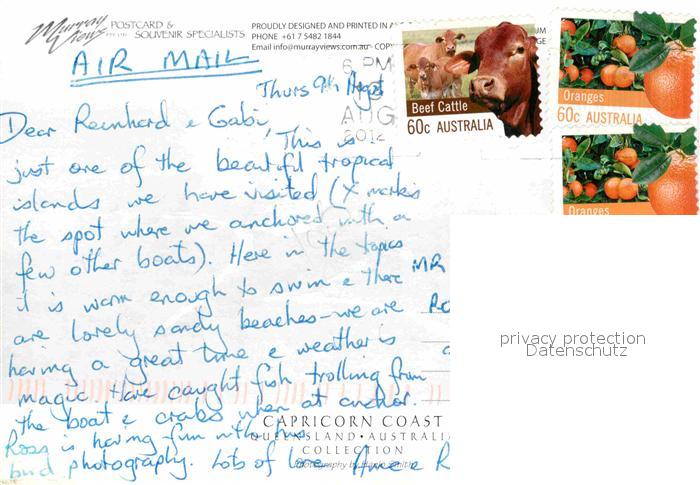 Murray Views
POSTCARD &
SOUVENIR SPECIALISTS
PROUDLY DESIGNED AND PRINTED IN A
PHONE +61 7 5482 1844
Email info@murrayviews.com.au
AIR MAIL
6 PM
AUG
2012
Beef Cattle
60c AUSTRALIA
Oranges
60c AUSTRALIA
Oranges
Thurs 9th August
Dear Reinhard & Gabi,
This is
just one of the beautiful tropical
islands we have visited (X marks
the spot where we anchored with a
few other boats). Here in the tropics
it is warm enough to swim & there
are lovely sandy beaches - we are
having a great time & weather is
magic. Have caught fish trolling from
the boat & crabs when at anchor.
Ross is having fun with his
bird photography. Lots of love
MR
privacy protection
Datenschutz
CAPRICORN COAST
QUEENSLAND • AUSTRALI
COLLECTION